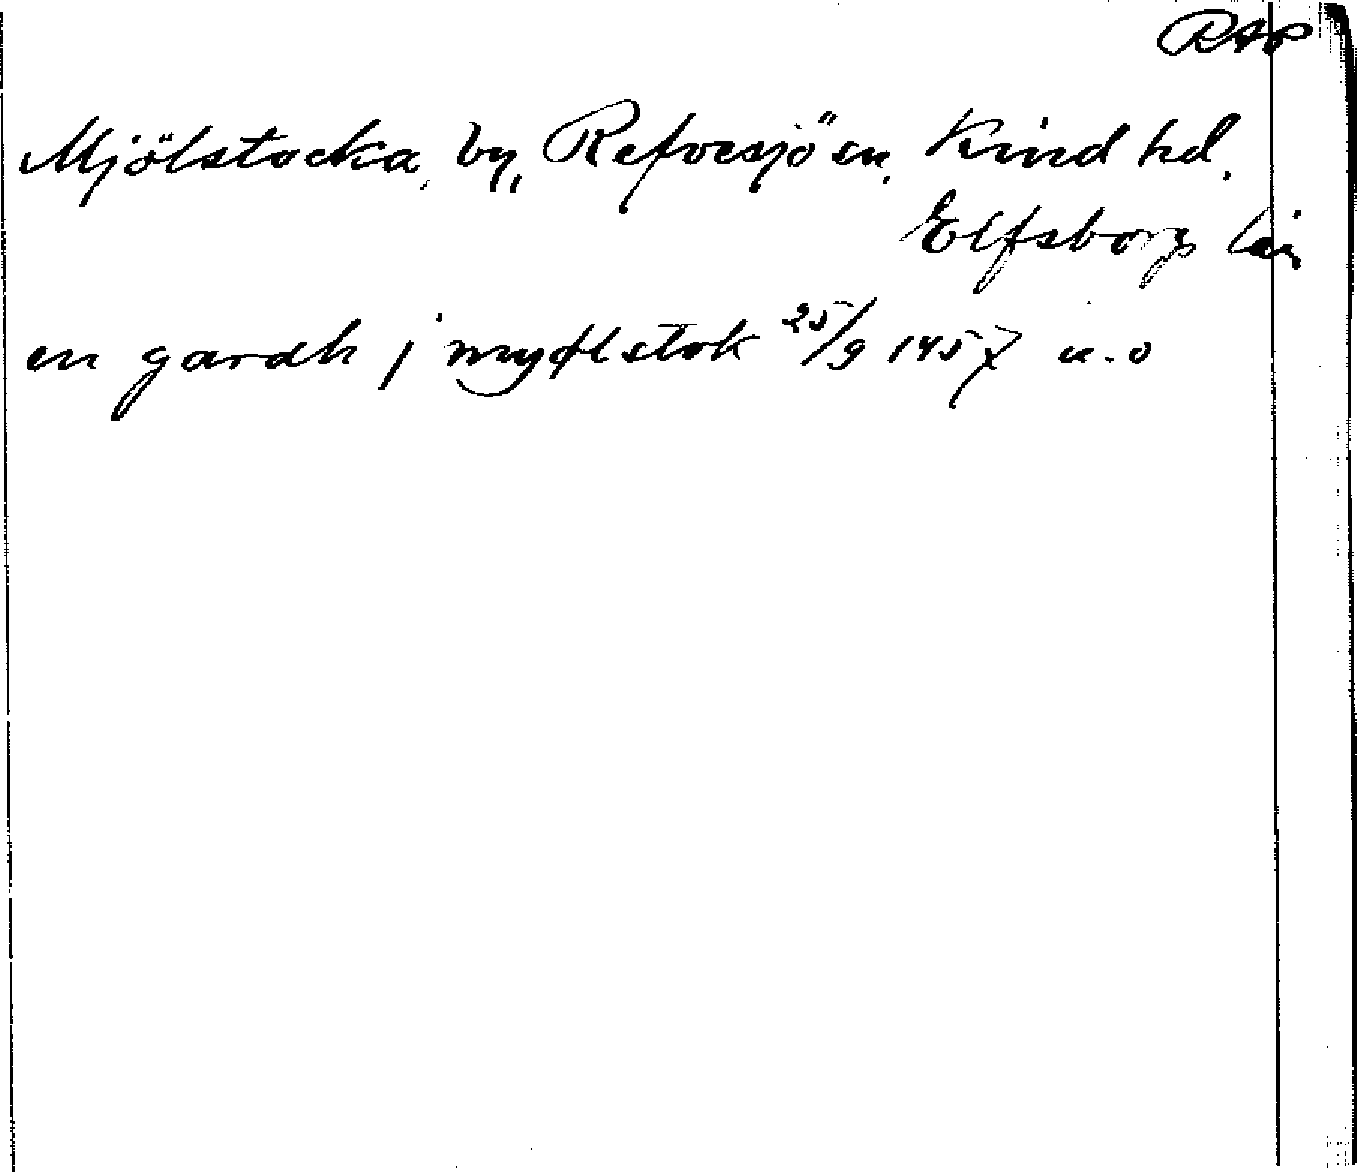 RAP
Mjölstocka, by, Refvesjö sn, Kind hd.
Elfsborgs län
en gardh j myølstok 25/9 1457 u. o